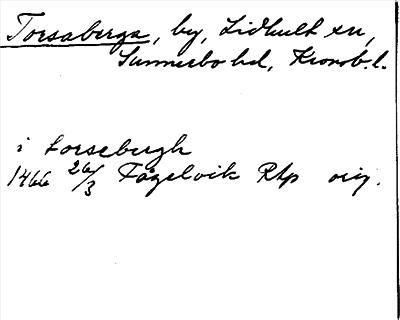 Torsaberga, by, Lidhult sn,
Sunnerbo hd, Kronob. l.
i torsebergh
1466 26/3 Fågelvik Rtp orig.